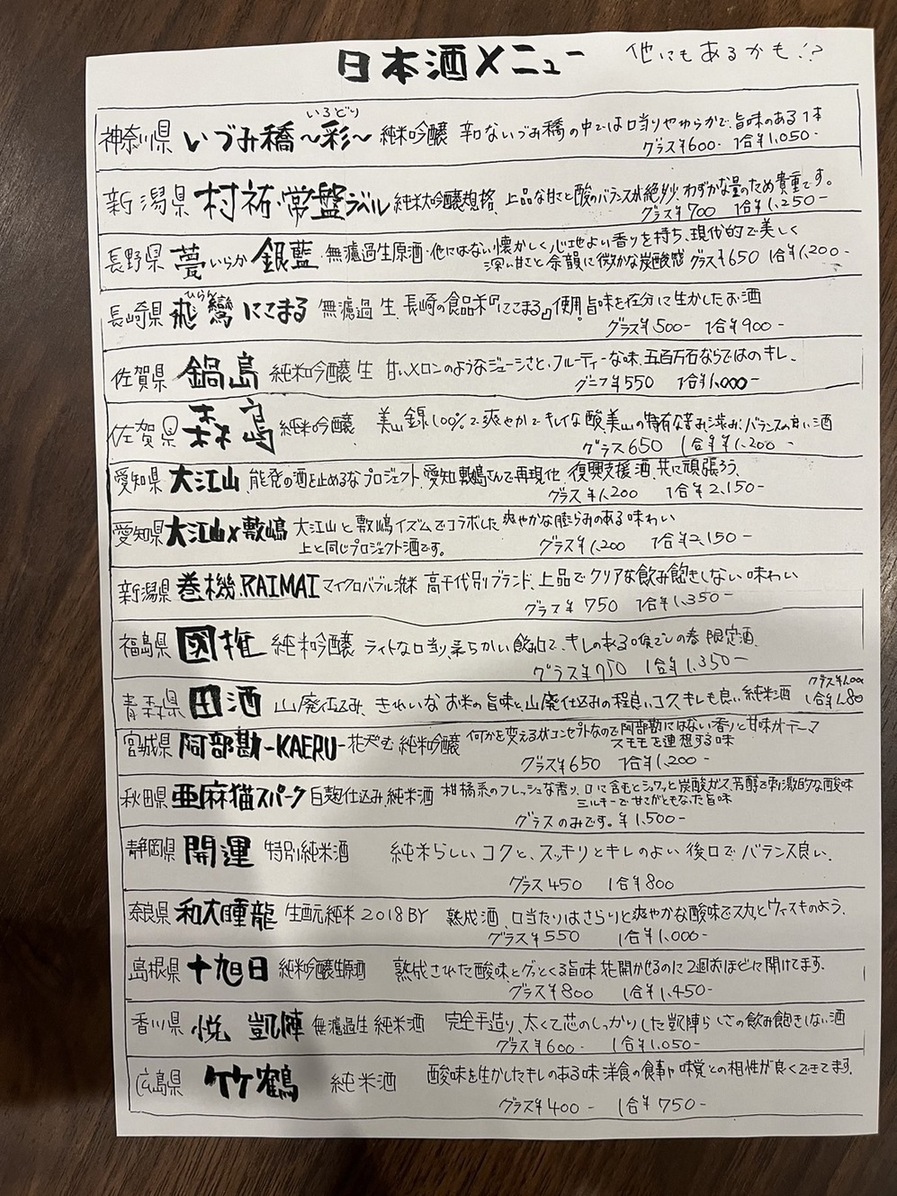 日本酒メニュー 他にもあるかも!?
いろどり
神奈川県 いづみ橋 〜彩〜 純米吟醸 辛ないづみ橋の中では口当りやわらかで、旨味のある1本
グラス¥600- 1合¥1,050-
新潟県 村祐・常盤ラベル 純米大吟醸規格、上品な甘さと酸のバランスが絶妙、わずかな量のため貴重です。
グラス¥700 1合¥1,250-
長野県 甍いらか 銀藍・無濾過生原酒・他にはない懐かしく心地よい香りを持ち、現代的で美しく
深い甘さと余韻に微かな炭酸感 グラス¥650 1合¥1,200-
ひらん
長崎県 飛鸞 にこまる 無濾過 生、長崎の食品米『にこまる』使用!旨味を存分に生かしたお酒
グラス¥500- 1合¥900-
佐賀県 鍋島 純米吟醸 生 甘いメロンのようなジューシさと、フルーティーな味、五百万石ならではのキレ、
グラス¥550 1合¥1,000-
佐賀県 森嶋 純米吟醸 美山錦100%で爽やかでキレイな酸、美山の特有な苦み渋み、バランスの良い酒
グラス650 1合¥1,200-
愛知県 大江山、能登の酒を止めるなプロジェクト、愛知敷嶋さんで再現化、復興支援酒、共に頑張ろう、
グラス¥1,200 1合¥2,150-
愛知県 大江山×敷嶋 大江山と敷嶋イズムでコラボした爽やかな膨らみのある味わい
上と同じプロジェクト酒です。 グラス¥1,200 1合¥2,150-
新潟県 巻機.RAIMAI マイクロバブル洗米 高千代別ブランド、上品でクリアな飲み飽きしない味わい
グラス¥750 1合¥1,350-
福島県 國権 純米吟醸 ライトな口当り、柔らかい飲み口で、キレのある喉ごしの春限定酒、
グラス¥750 1合¥1,350-
青森県 田酒 山廃仕込み、きれいなお米の旨味と、山廃仕込みの程良いコク、キレも良い純米酒 グラス¥1,000
1合¥1,80
宮城県 阿部勘-KAERU-花 純米吟醸 何かを変えるがコンセプトなので阿部勘にはない香りと甘味がテーマ
スモモを連想する味
グラス¥650 1合¥1,200-
秋田県 亜麻猫スパーク 白麹仕込み純米酒 柑橘系のフレッシュな香り、口に含むとシュワッと炭酸ガス、芳醇で刺激的な酸味
ミルキーで甘さがともなった旨味
グラスのみです。¥1,500-
静岡県 開運 特別純米酒 純米らしいコクと、スッキリとキレのよい後口でバランス良い、
グラス450 1合¥800
奈良県 和大睡龍 生酛純米 2018BY 熟成酒、口当たりはさらりと爽やかな酸味で スカッとウィスキのよう、
グラス¥550 1合¥1,000-
島根県 十旭日 純米吟醸生原酒 熟成された酸味とグッとくる旨味 花開かせるのに2週おほどに開けてます。
グラス¥800 1合¥1,450-
香川県 悦 凱陣 無濾過生 純米酒 完全手造り、太くて芯のしっかりした凱陣らしさの飲み飽きしない酒
グラス¥600- 1合¥1,050-
広島県 竹鶴 純米酒 酸味を生かしたキレのある味 洋食の食事や味覚との相性が良くできてます。
グラス¥400- 1合¥750-